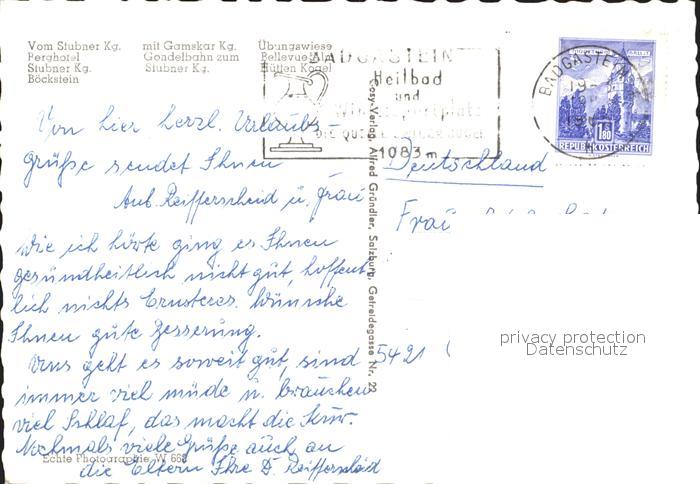 Vom Stubner Kg. mit Gamskar Kg. Übungswiese
Berghotel Gondelbahn zum Bellevue Alm
Stubner Kg. Stubner Kg. Hütten Kogel
Böckstein
BADGASTEIN
Heilbad
und
Wintersportplatz
1083 m
BADGASTEIN
1.80
REPUBLIK ÖSTERREICH
Von hier herzl. Urlaubs-
grüße sendet Ihnen
Aub. Reifferscheid u. Frau
Wie ich hörte ging es Ihnen
gesundheitlich nicht gut, hoffent
lich nichts Ernsteres. Wünsche
Ihnen gute Besserung.
Uns geht es soweit gut, sind
immer viel müde u. brauchen
viel Schlaf, das macht die Kur.
Nochmals viele Grüße auch an
die Eltern Ihre F. Reifferscheid
Echte Photographie W 668
Cosy-Verlag, Alfred Gründler, Salzburg, Getreidegasse Nr. 22
Deutschland
Frau
5421
privacy protection
Datenschutz